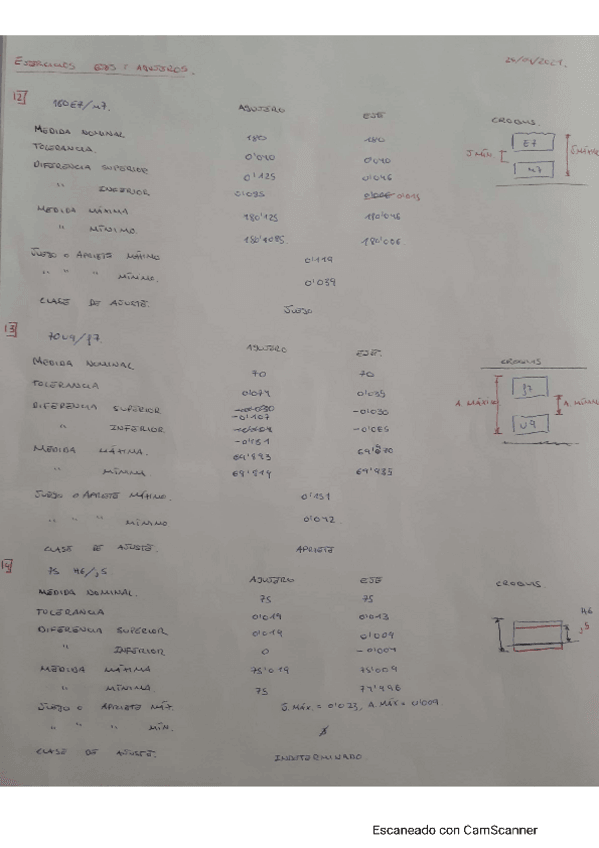 EJERCICIOS EJES Y AGUJEROS.
12
180E7/m7.
AGUJERO EJE
CROQUIS.
MEDIDA NOMINAL 180 180
TOLERANCIA. 0'040 0'040
DIFERENCIA SUPERIOR 0'125 0'046
" INFERIOR 0'085 0'015
MEDIDA MÁXIMA 180'125 180'046
" MÍNIMO. 180'085. 180'006.
E7
m7
J MÍN
J MÁX
JUEGO O APRIETE MÁXIMO 0'119
" " " MÍNIMO. 0'039
CLASE DE AJUSTE. JUEGO
13
70U9/f7.
AGUJERO EJE.
CROQUIS
MEDIDA NOMINAL. 70 70
TOLERANCIA 0'074 0'035
DIFERENCIA SUPERIOR -0'107 -0'030
" INFERIOR -0'181 -0'065
MEDIDA MÁXIMA. 69'893 69'970
" MÍNIMA 69'819 69'935
f7
U9
A MÁXIM
A MÍNIM
JUEGO O APRIETE MÁXIMO. 0'151
" " " MÍNIMO 0'042.
CLASE DE AJUSTE. APRIETE
14
75 H6/j5
AGUJERO EJE
CROQUIS
MEDIDA NOMINAL. 75 75
TOLERANCIA 0'019 0'013
DIFERENCIA SUPERIOR 0'019 0'009
" INFERIOR 0 -0'004
MEDIDA MÁXIMA 75'019 75'009
" MÍNIMA. 75 74'996
H6
j5
JUEGO O APRIETE MÁX. J. MÁX. = 0'023, A. MÁX = 0'009.
" " " MÍN.
CLASE DE AJUSTE. INDETERMINADO
Escaneado con CamScanner